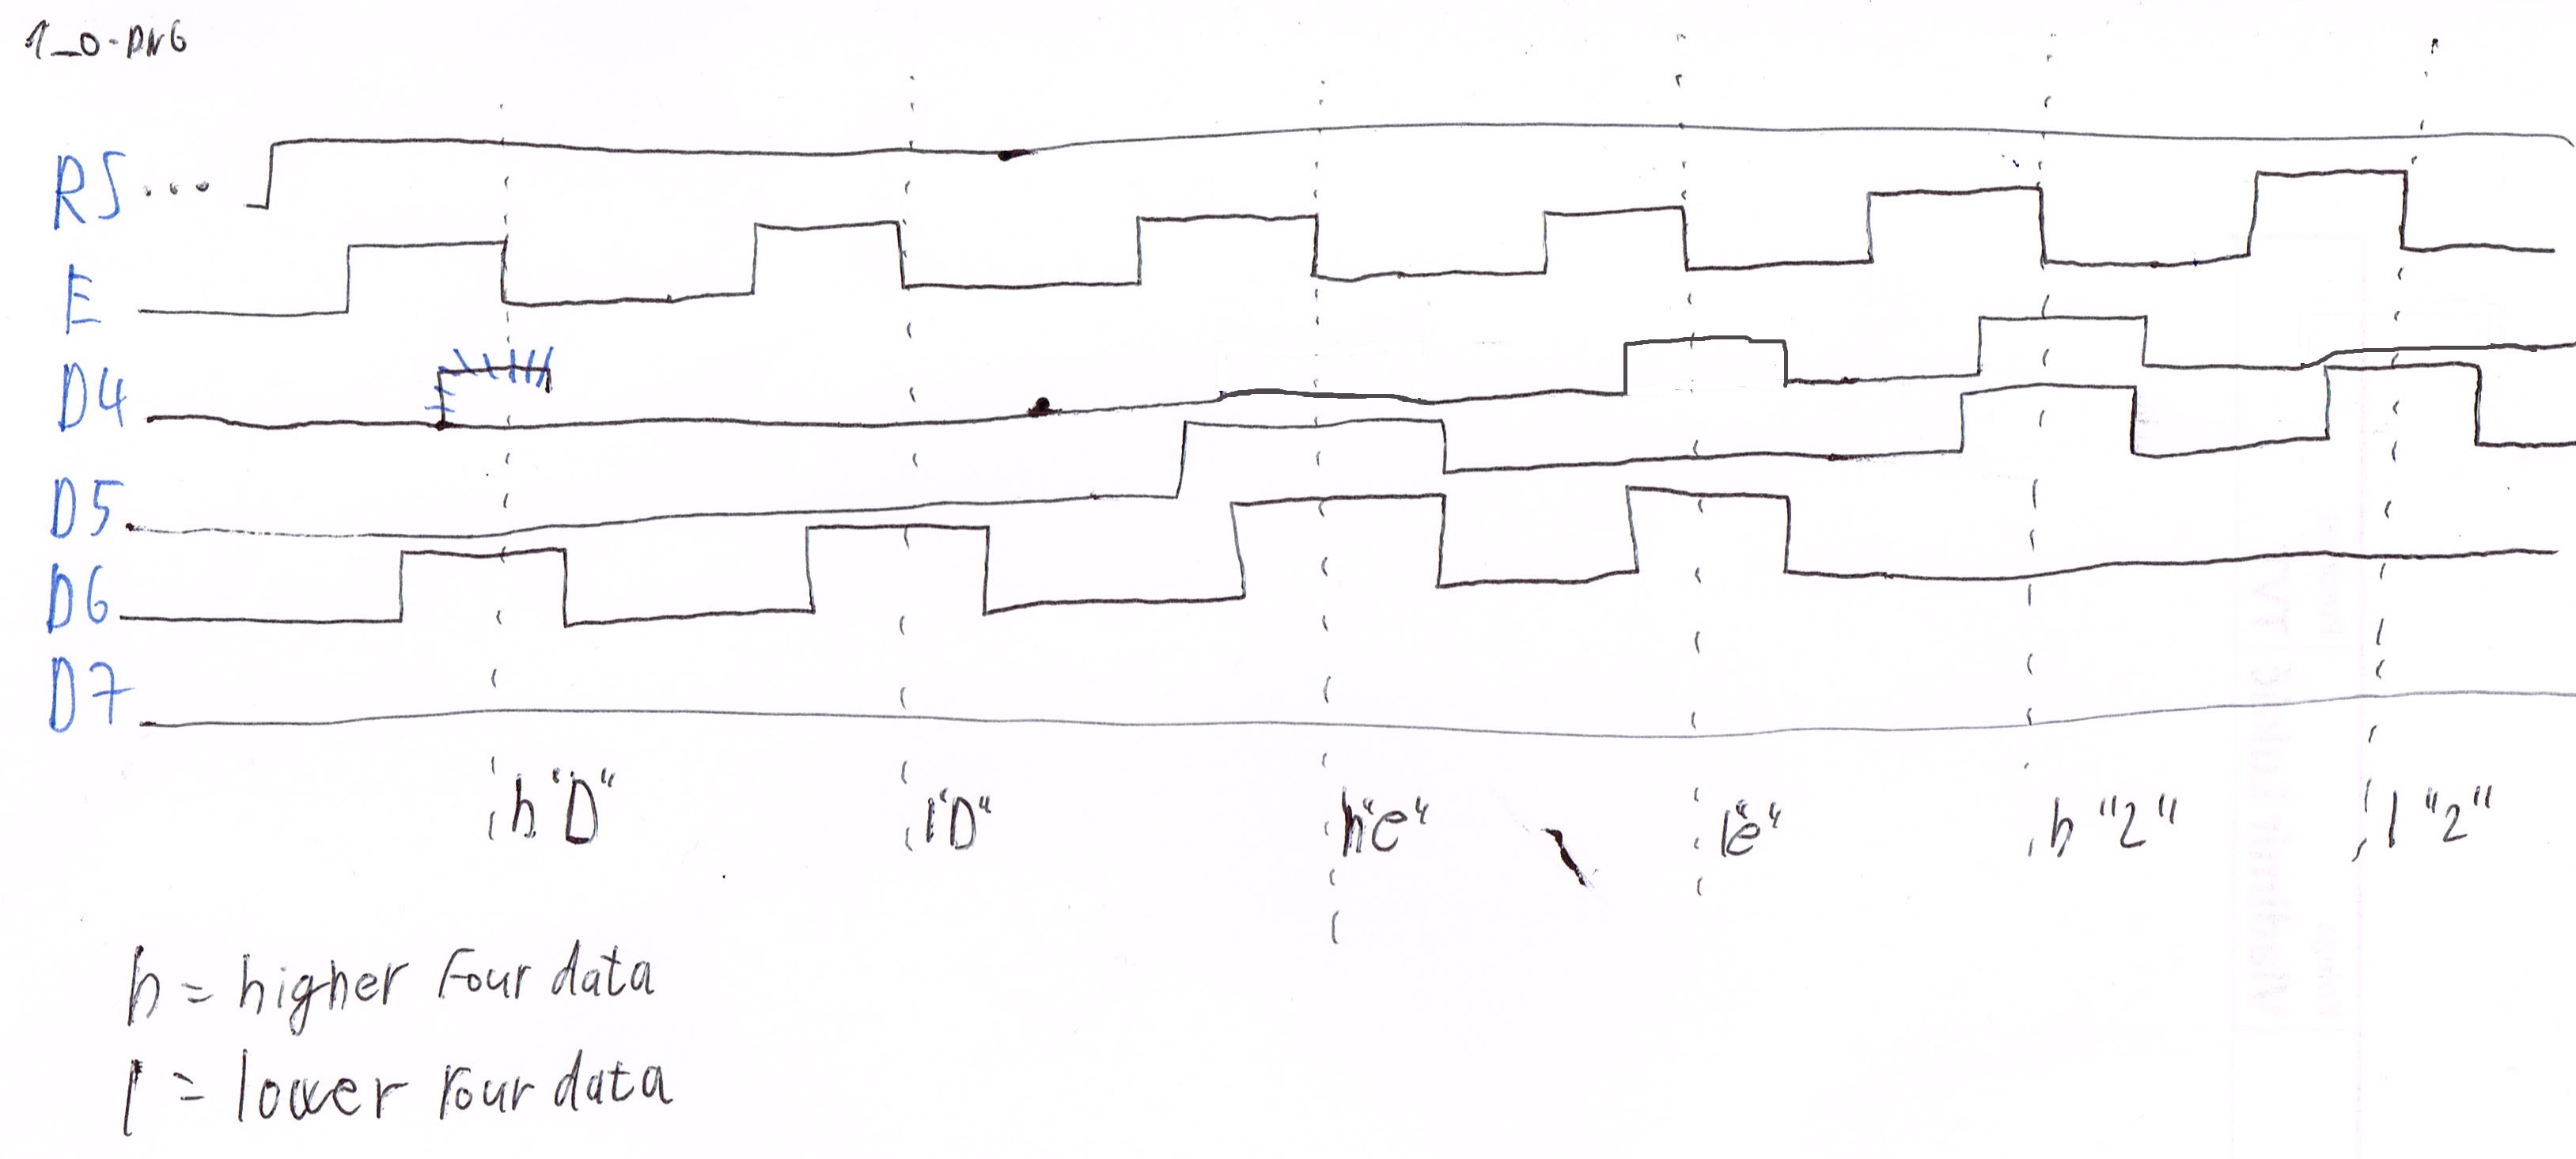 1_0-PNG
RS...
E
D4
D5
D6
D7
h"D" l"D" h"e" l"e" h "2" l "2"
h = higher four data
l = lower four data